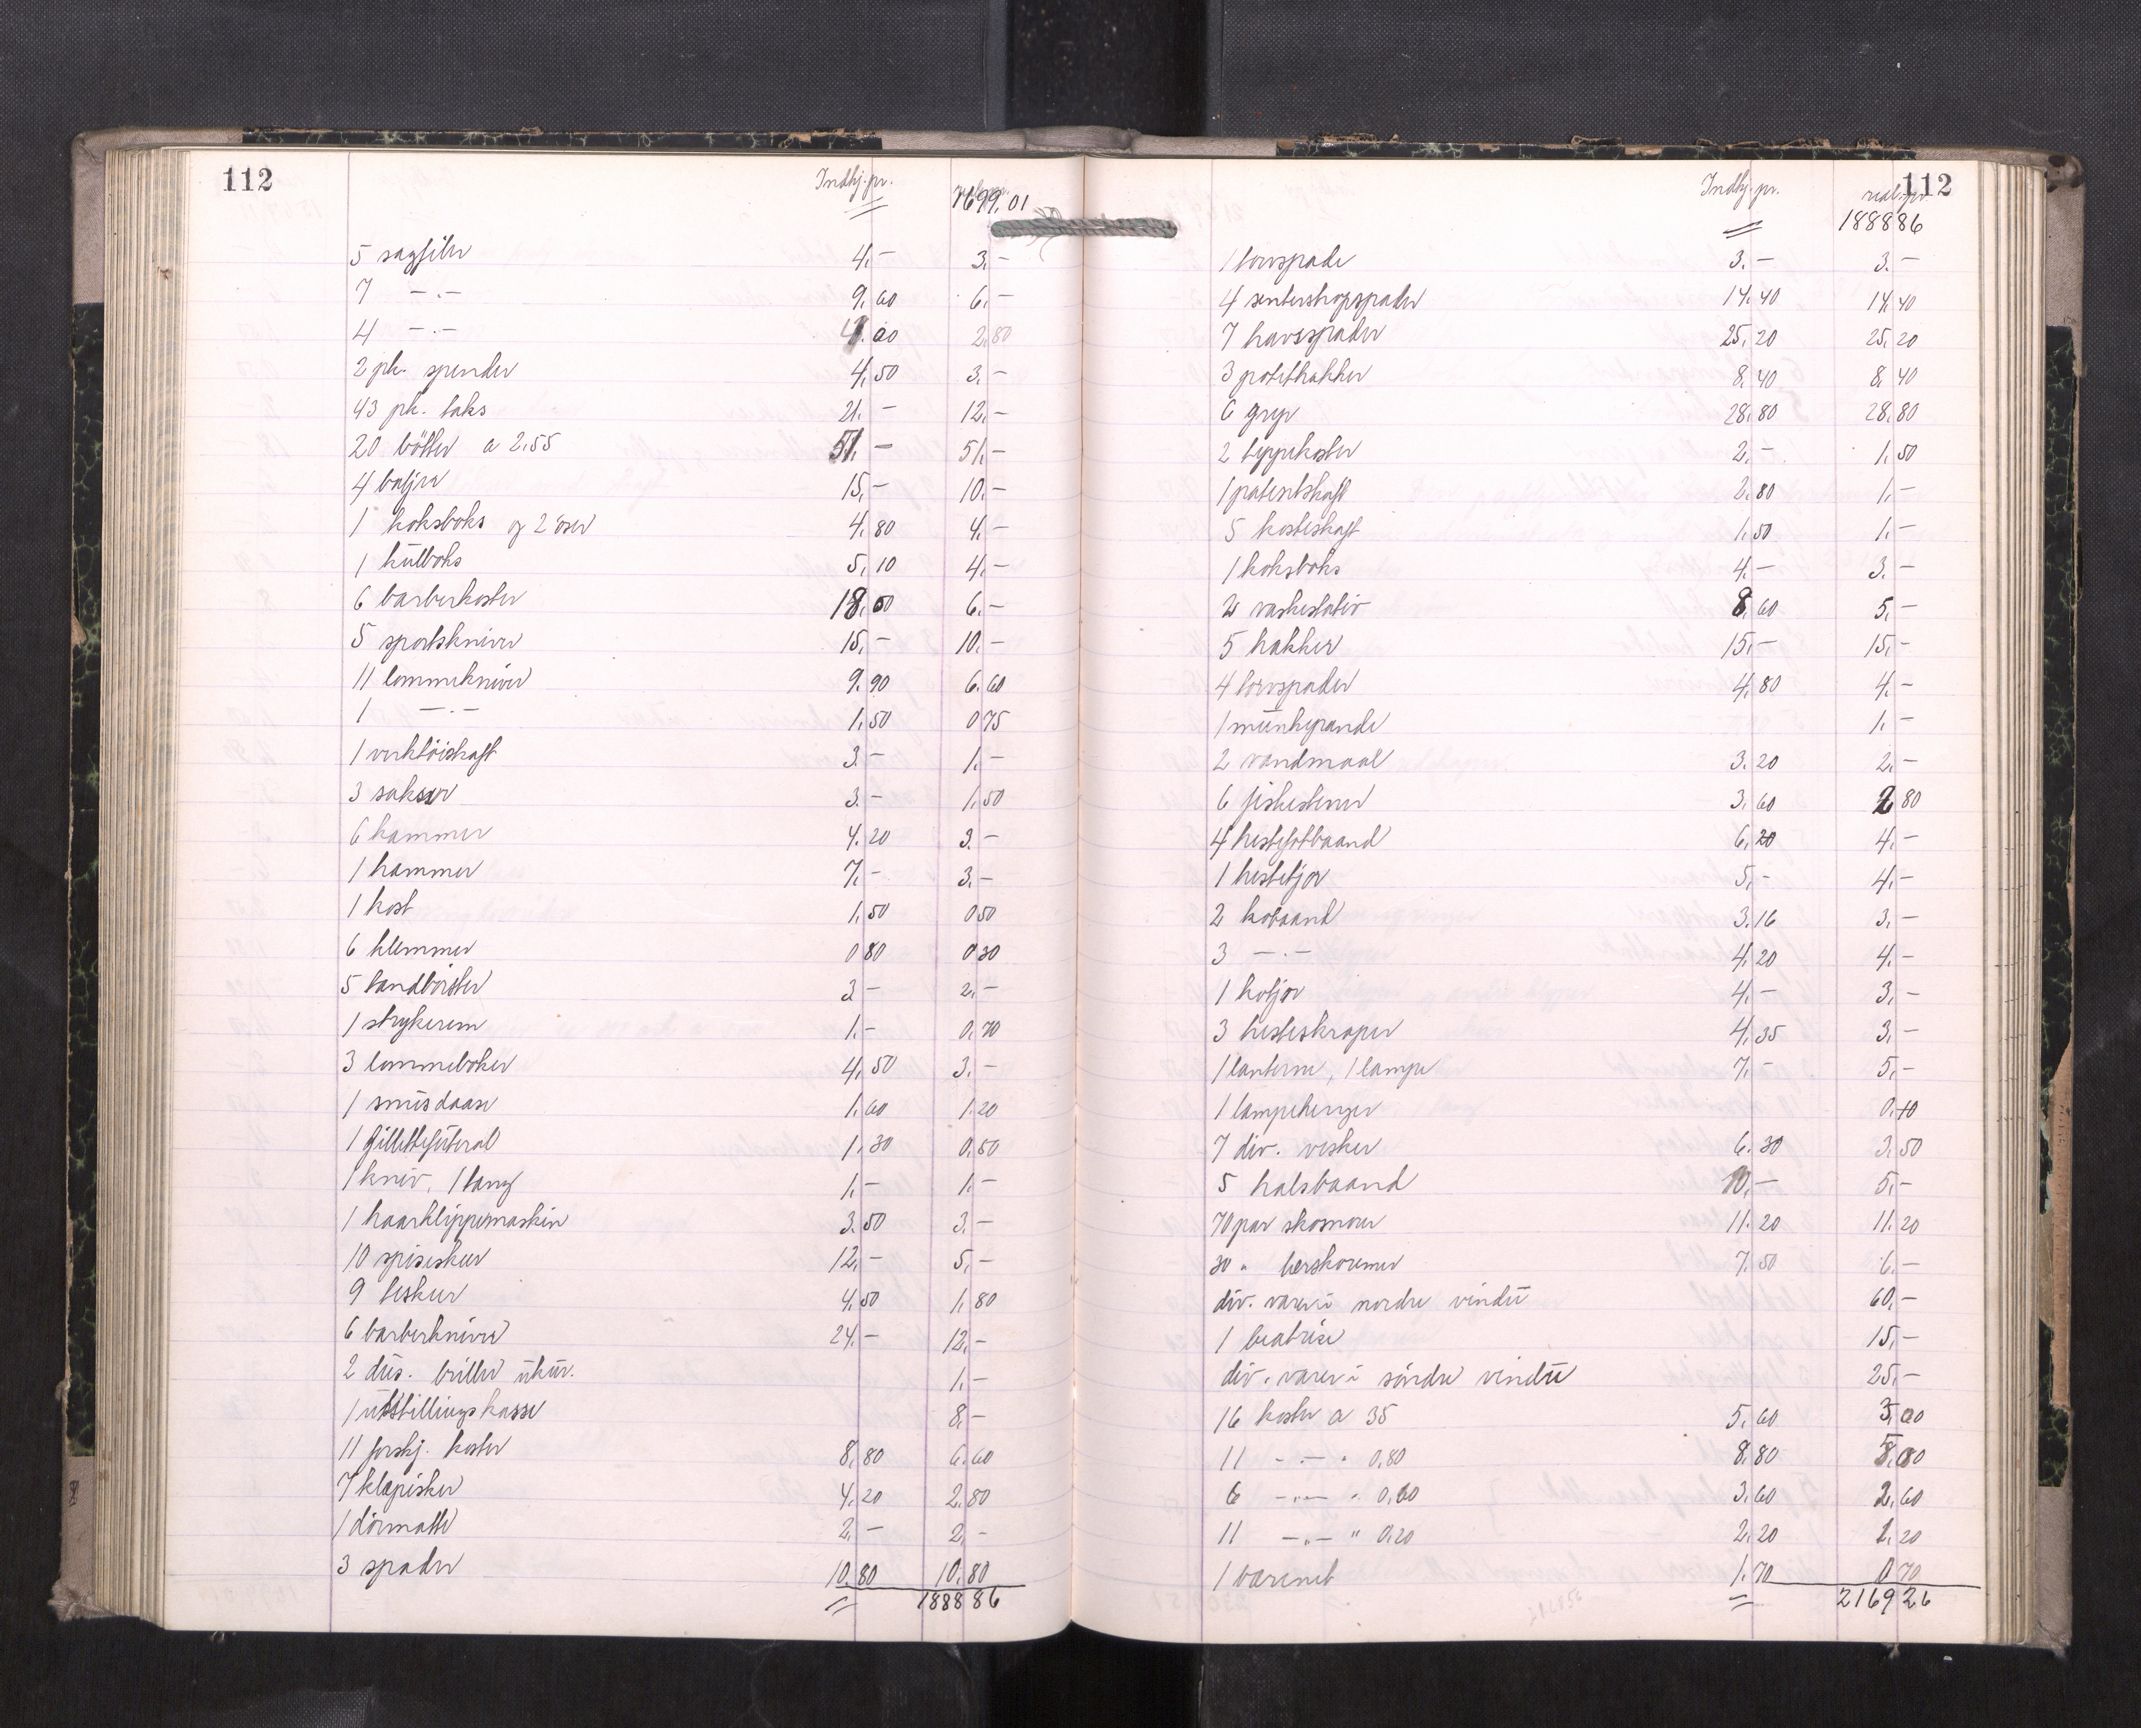 112
Indkj. pr. real. pr.
1699,01
5 sagfiler 4,- 3,-
7 -.- 9,60 6,-
4 -.- 2,80
2 pk. spender 4,50 3,-
43 pk. taks 21,- 12,-
20 bøtter a 2,55 51,- 51,-
4 baljer 15,- 10,-
1 koksboks og 2 øser 4,80 4,-
1 kulboks 5,10 4,-
6 barberkoster 18,00 6,-
5 sportskniver 15,- 10,-
11 lommekniver 9,90 6,60
1 -.- 1,50 0,75
1 verktöiskaft 3,- 1,-
3 sakser 3,- 1,50
6 hammer 4,20 3,-
1 hammer 7,- 3,-
1 kost 1,50 0,50
6 klemmer 0,80 0,30
5 tandbörster 3,- 2,-
1 strykerem 1,- 0,70
3 lommeboker 4,50 3,-
1 snusdaase 1,60 1,20
1 Gillettefuteral 1,30 0,50
1 kniv, 1 tang 1,- 1,-
1 haarklippemaskin 3,50 3,-
10 spiseskeer 12,- 5,-
9 teskeer 4,50 1,80
6 barberkniver 24,- 12,-
2 dus. briller ukur. 1,-
1 utstillingskasse 8,-
11 forskj. koster 8,80 6,60
7 klapisker 4,20 2,80
1 dörmatte 2,- 2,-
3 spader 10,80 10,80
1888 86
112
Indkj. pr. real. pr.
1888 86
1 torvspade 3,- 3,-
4 senterskogspader 14,40 14,40
7 havespader 25,20 25,20
3 potethakker 8,40 8,40
6 greip 28,80 28,80
2 teppekoster 2,- 1,50
1 patentskaft 2,80 1,-
5 kosteskaft 1,50 1,-
1 koksboks 4,- 3,-
2 vaskestativ 8,60 5,-
5 hakker 15,- 15,-
4 torvspader 4,80 4,-
1 munkepande 1,-
2 vandmaal 3,20 2,-
6 fiskestener 3,60 2,80
4 hestefotbaand 6,20 4,-
1 hestetjor 5,- 4,-
2 kobaand 3,16 3,-
3 -.- 4,20 4,-
1 kotjor 4,- 3,-
3 hesteskraper 4,35 3,-
1 lanterne, 1 lampe 7,- 5,-
1 lampehenger 0,40
7 div. vesker 6,30 3,50
5 halsbaand 10,- 5,-
70 par skosnorer 11,20 11,20
30 " lærskoremer 7,50 6,-
div. varer i nordre vindu 60,-
1 beatrise 15,-
div. varer i söndre vindu 25,-
16 koster a 35 5,60 3,00
11 -.- " 0,80 8,80 5,80
6 -.- " 0,60 3,60 2,60
11 -.- " 0,20 2,20 1,20
1 varenet 1,70 0,70
2169 26